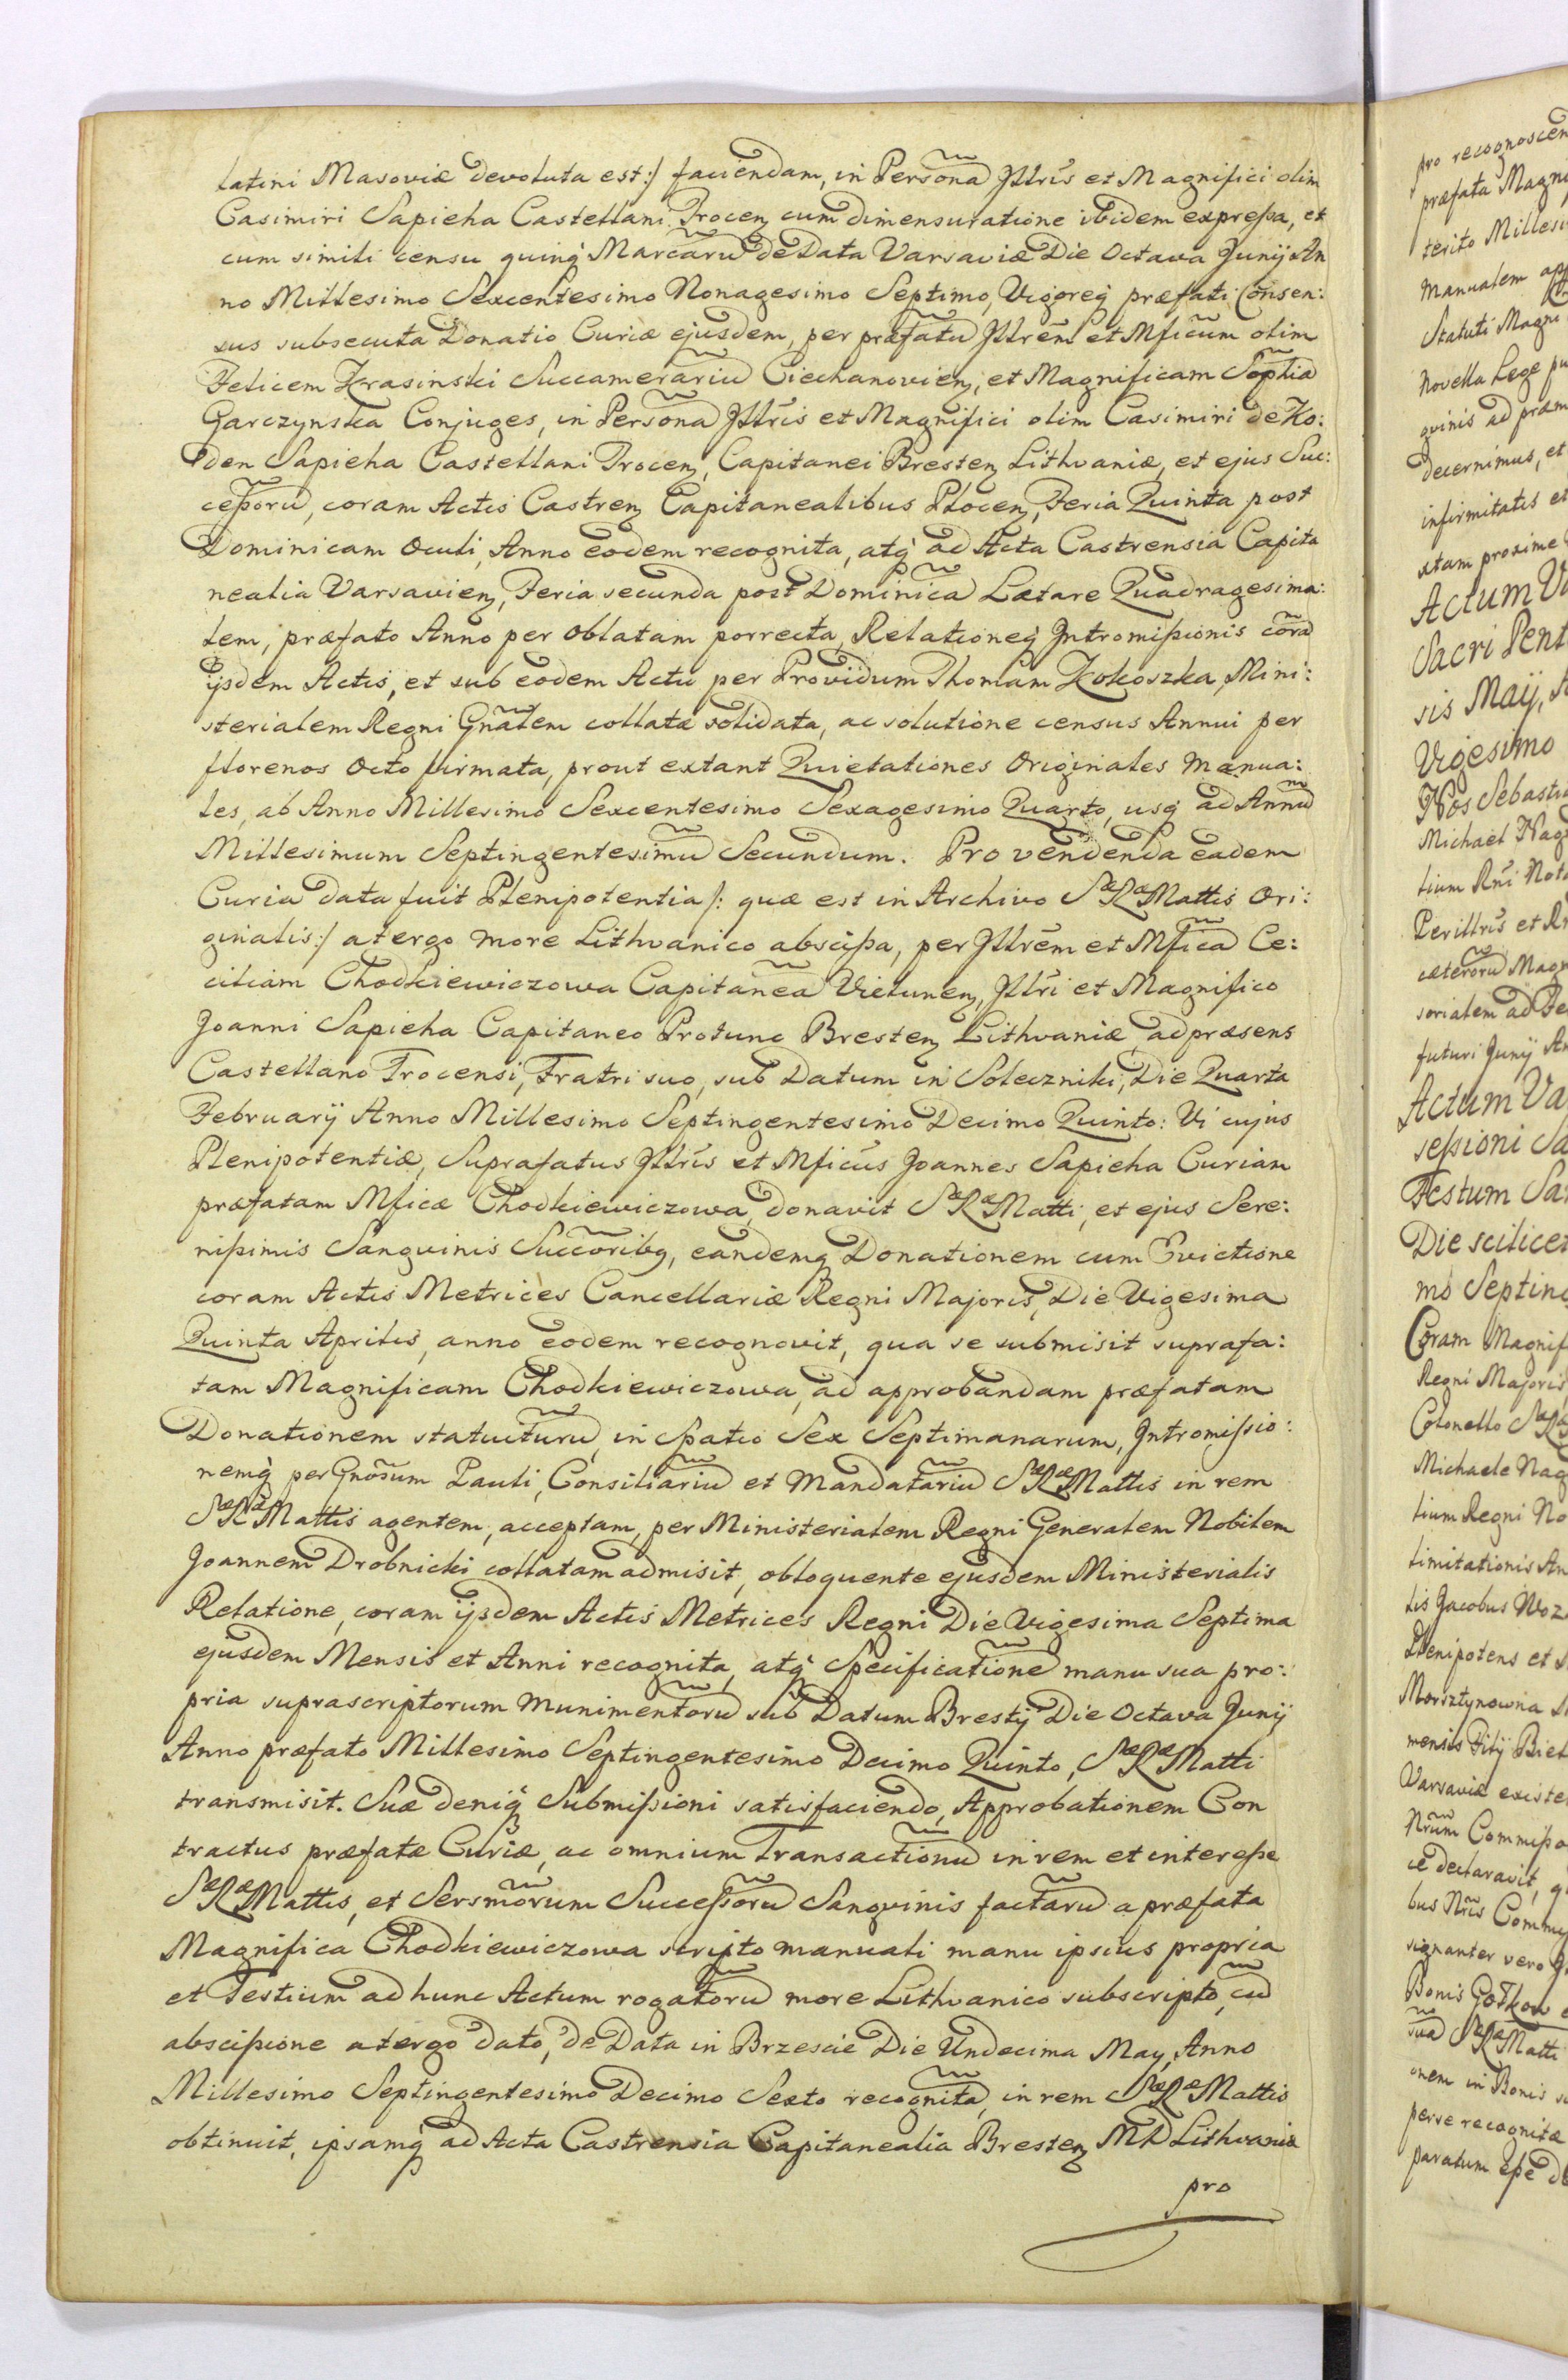 latini Masoviæ devoluta est:/ faciendam, in Persona Jllr̃is et Magnifici olim
Casimiri Sapieha Castellani Trocen̄ cum dimensuratione ibidem expreßa, et
cum simili censu quinq̀ Marcarũ de Data Varsaviæ Die Octava Junij An
no Millesimo Sexcentesimo Nonagesimo Septimo, Vigoreq̀ præfati Consen:
sus subsecuta Donatio Curiæ ejusdem, per præfatũ Jllrẽm et Mficũm olim
Felicem Krasinski Succamerariũ Ciechanovien̄, et Magnificam Sophiã
Garczynska Conjuges, in Persona Jllr̃is et Magnifici olim Casimiri de Ko:
den Sapieha Castellani Trocen̄, Capitanei Bresten̄ Lithvaniæ, et ejus Suc:
ceßorũ, coram Actis Castren̄ Capitanealibus Plocen̄, Feria Quinta post
Dominicam Oculi, Anno eodem recognita, atq̀ ad Acta Castrensia Capita
nealia Varsavien̄, Feria secunda post Dominicã Lætare Quadragesima:
lem, præfato Anno per Oblatam porrecta, Relationeq̀ Jntromißionis corã
ijsdem Actis, et sub eodem Actu per Providum Thomam Kokoszka, Mini:
sterialem Regni Gnãlem collatæ solidata, ac solutione census Annui per
florenos Octo firmata, prout extant Quietationes Originales Manua:
les, ab Anno Millesimo Sexcentesimo Sexagesimo Quarto, usq̀ ad Annũ
Millesimum Septingentesimũ Secundum. Pro vendenda eadem
Curia data fuit Plenipotentia /: quæ est in Archivo SæRæMattis Ori:
ginalis:/ a tergo more Lithvanico abscißa, per Jllrẽm et Mficã Ce:
ciliam Chodkiewiczowa Capitaneã Vielunen̄, Jllr̃i et Magnifico
Joanni Sapieha Capitaneo Protunc Bresten̄ Lithvaniæ ad præsens
Castellano Trocensi, Fratri suo, sub Datum in Soleczniki, Die Quarta
Februarij Anno Millesimo Septingentesimo Decimo Quinto: Vi cujus
Plenipotentiæ, Suprafatus Jllr̃is et Mficũs Joannes Sapieha Curiam
præfatam Mficæ Chodkiewiczowa, donavit SæRæMatti, et ejus Sere:
nißimis Sangvinis Succoribq, eandemq̀ Donationem cum Evictione
coram Actis Metrices Cancellariæ Regni Majoris, Die Vigesima
Quinta Aprilis, anno eodem recognovit, qua se submisit suprafa:
tam Magnificam Chodkiewiczowa, ad approbandam præfatam
Donationem statuiturũ, in Spatio Sex Septimanarum, Jntromißio:
nemq̀ per Gnõsum Pauli, Consiliariũ et Mandatariũ SæRæMattis in rem
SæRæMattis agentem, acceptam, per Ministerialem Regni Generalem Nobilem
Joannem Drobnicki collatam admisit, obloquente ejusdem Ministerialis
Relatione, coram ijsdem Actis Metrices Regni Die Vigesima Septima
ejusdem Mensis et Anni recognita, atq̀ Specificationẽ manu sua pro:
pria suprascriptorum munimentorũ sub Datum Brestij Die Octava Junij
Anno præfato Millesimo Septingentesimo Decimo Quinto, SæRæMatti
transmisit. Suæ deniq̀ Submißioni satisfaciendo, Approbationem Con
tractus præfatæ Curiæ, ac omnium Transactionũ in rem et intereße
SæRæMattis, et Sersmõrum Succeßorũ Sangvinis factarũ a præfata
Magnifica Chodkiewiczowa scripto manuali manu ipsius propria
et Testium ad hunc Actum rogatorũ more Lithvanico subscripto, cũ
abscißione a tergo dato, de Data in Brzescie Die Undecima May, Anno
Millesimo Septingentesimo Decimo Sexto recognitã, in rem SæRæMattis
obtinuit, ipsamq̀ ad Acta Castrensia Capitanealia Bresten̄ MD Lithvaniæ
pro
pro recognoscen
præfata Magn
terito Millesi
Manualem
Statuti Magni
Novella Lege
decernimus, et
infirmitatis et
proxime
Actum
Sacri
sis Maij,
Vigesimo
Nos
Michael
Perillr̃is et
cæterorũ Magn
futuri Junij
Actum
Festum
Die scilicet
mo
Coram
Regni Majoris
Colonello
Michaele
tium Regni
limitationis
tis Jacobus
Plenipotens et
Morsztynowna
mensis
Varsaviæ
ce declaravit,
signanter vero
Bonis Gołkow
SæRæMatti
onem in Bonis
recognitæ
paratum eße